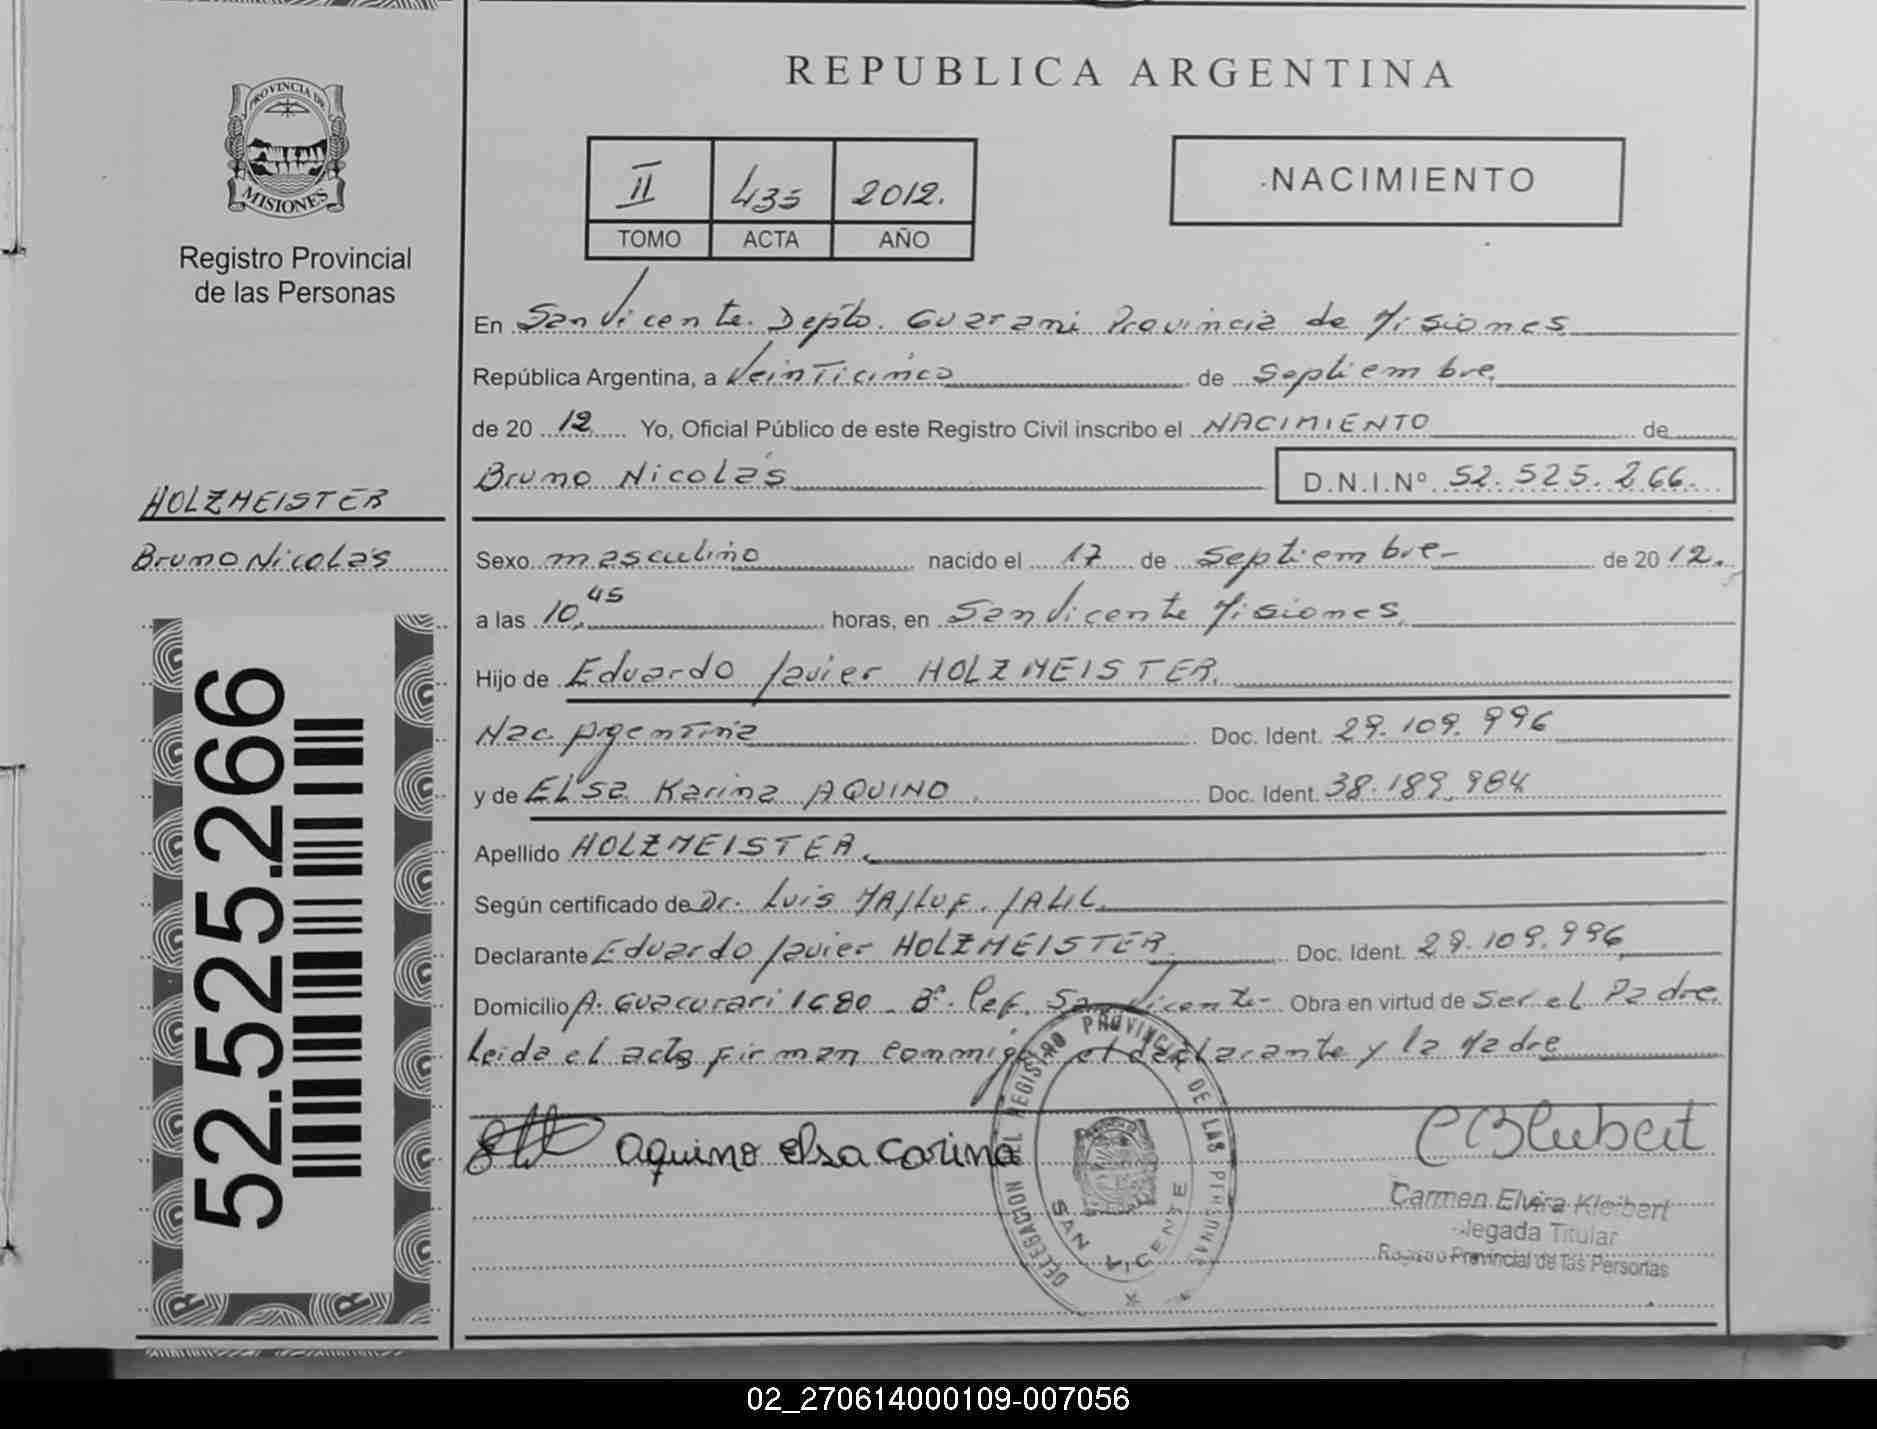 REPUBLICA ARGENTINA
PROVINCIA DE
MISIONES
Registro Provincial
de las Personas
II 435 2012.
TOMO ACTA AÑO
NACIMIENTO
En San Vicente. Depto. Guarani Provincia de Misiones
República Argentina, a Veinticinco de Septiembre
de 20 12 Yo, Oficial Público de este Registro Civil inscribo el NACIMIENTO de
Bruno Nicolás D.N.I.Nº 52.525.266.
HOLZMEISTER
Bruno Nicolás
Sexo masculino nacido el 17 de Septiembre de 20 12.
a las 10,45 horas, en San Vicente Misiones.
Hijo de Eduardo Javier HOLZMEISTER.
Nac Argentina Doc. Ident. 29.109.996
y de Elsa Karina AQUINO Doc. Ident. 38.189.984
Apellido HOLZMEISTER.
Según certificado de Dr. Luis MAJLUF. JALIL.
Declarante Eduardo Javier HOLZMEISTER Doc. Ident. 29.109.996
Domicilio A. Guacurari 1680 - Bº. San Vicente- Obra en virtud de Ser el Padre.
Leida el acta firman conmigo el declarante y la Madre
52.525.266
Aquino Elsa Carina
DELEGACION DEL REGISTRO PROVINCIAL DE LAS PERSONAS
SAN VICENTE
Carmen Elvira Kleibert
legada Titular
Registro Provincial de las Personas
02_270614000109-007056